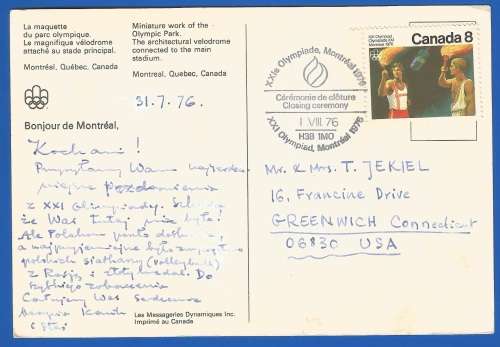 La maquette
du parc olympique.
Le magnifique vélodrome
attaché au stade principal.
Montréal, Québec, Canada
Miniature work of the
Olympic Park.
The architectural velodrome
connected to the main
stadium.
Montreal, Quebec, Canada
31.7.76.
Bonjour de Montréal,
Kochani!
Przysyłamy Wam
pozdrowienia
z XXI Olimpiady.
że Was tutaj nie było!
Ale Polakom poszło
a najprzyjemniejsze było
polskich siatkarzy (volleyball)
z Rosją i złoty medal. Do
szybkiego zobaczenia
Całujemy Was serdecznie
Les Messageries Dynamiques Inc.
Imprimé au Canada
XXIe Olympiade, Montréal 1976
Cérémonie de clôture
Closing ceremony
1 VIII 76
H3B 1M0
XXI Olympiad, Montreal 1976
Canada 8
Mr. & Mrs. T. JEKIEL
16, Francine Drive
GREENWICH Connecticut
06830 USA